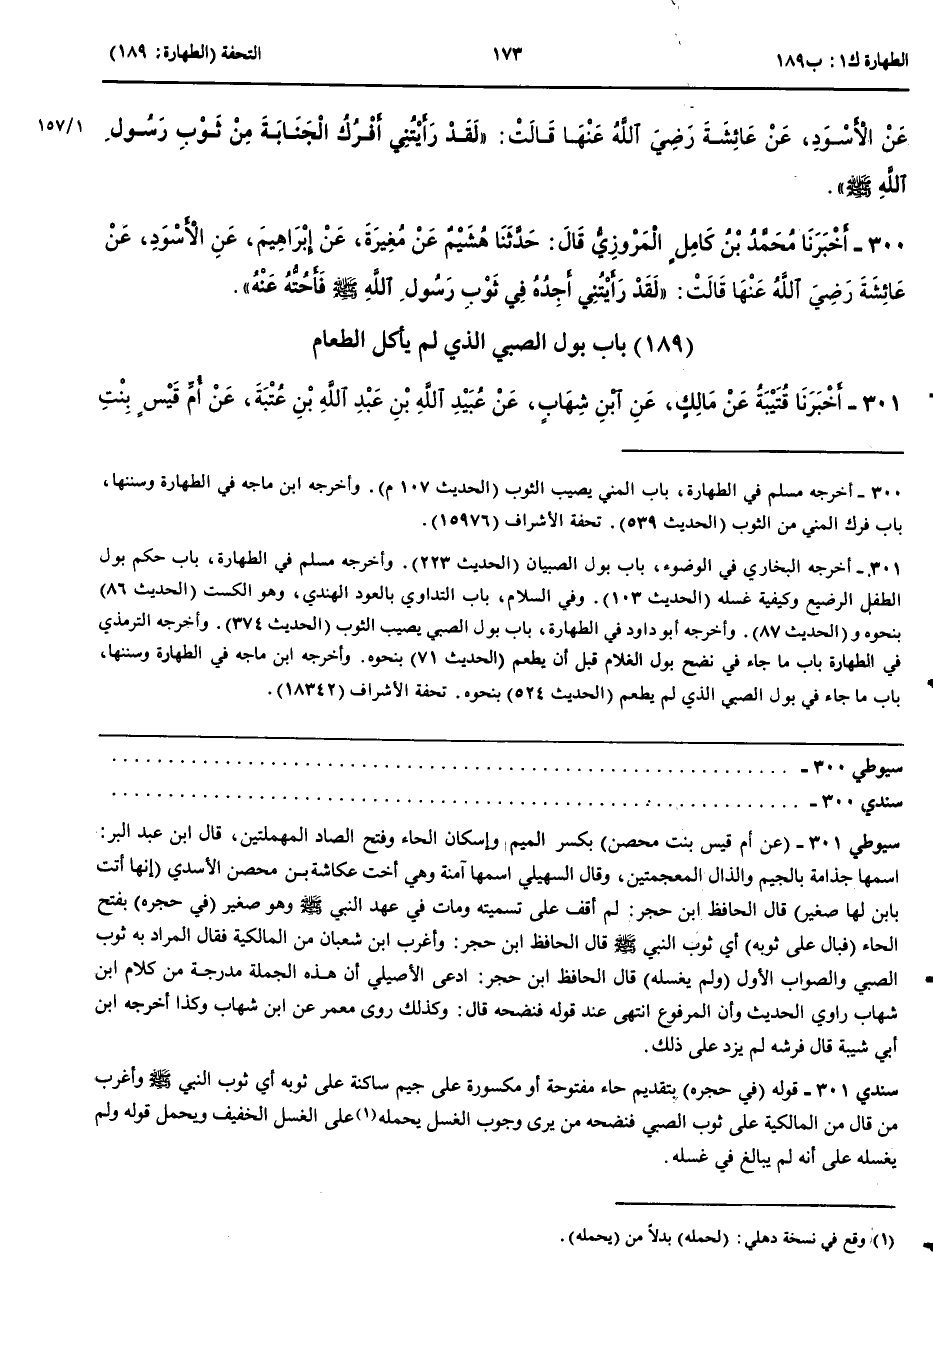 الطهارة ك١: ب١٨٩ ١٧٣ التحفة (الطهارة: ١٨٩)
عَنْ الْأَسْوَدِ، عَنْ عَائِشَةَ رَضِيَ ٱللَّهُ عَنْهَا قَالَتْ: «لَقَدْ رَأَيْتُنِي أَفْرُكُ الْجَنَابَةَ مِنْ ثَوْبِ رَسُولِ ١٥٧/١
ٱللَّهِ ﷺ».
٣٠٠ ـ أَخْبَرَنَا مُحَمَّدُ بْنُ كَامِلٍ الْمَرْوَزِيُّ قَالَ: حَدَّثَنَا هُشَيْمٌ عَنْ مُغِيرَةَ، عَنْ إِبْرَاهِيمَ، عَنِ الْأَسْوَدِ، عَنْ
عَائِشَةَ رَضِيَ ٱللَّهُ عَنْهَا قَالَتْ: «لَقَدْ رَأَيْتُنِي أَجِدُهُ فِي ثَوْبِ رَسُولِ ٱللَّهِ ﷺ فَأَحُتُّهُ عَنْهُ».
(١٨٩) باب بول الصبي الذي لم يأكل الطعام
٣٠١ ـ أَخْبَرَنَا قُتَيْبَةُ عَنْ مَالِكٍ، عَنِ ٱبْنِ شِهَابٍ، عَنْ عُبَيْدِ ٱللَّهِ بْنِ عَبْدِ ٱللَّهِ بْنِ عُتْبَةَ، عَنْ أُمِّ قَيْسٍ بِنْتِ
٣٠٠ ـ أخرجه مسلم في الطهارة، باب المني يصيب الثوب (الحديث ١٠٧ م). وأخرجه ابن ماجه في الطهارة وسننها،
باب فرك المني من الثوب (الحديث ٥٣٩). تحفة الأشراف (١٥٩٧٦).
٣٠١ ـ أخرجه البخاري في الوضوء، باب بول الصبيان (الحديث ٢٢٣). وأخرجه مسلم في الطهارة، باب حكم بول
الطفل الرضيع وكيفية غسله (الحديث ١٠٣). وفي السلام، باب التداوي بالعود الهندي، وهو الكست (الحديث ٨٦)
بنحوه و (الحديث ٨٧). وأخرجه أبو داود في الطهارة، باب بول الصبي يصيب الثوب (الحديث ٣٧٤). وأخرجه الترمذي
في الطهارة باب ما جاء في نضح بول الغلام قبل أن يطعم (الحديث ٧١) بنحوه. وأخرجه ابن ماجه في الطهارة وسننها،
باب ما جاء في بول الصبي الذي لم يطعم (الحديث ٥٢٤) بنحوه. تحفة الأشراف (١٨٣٤٢).
سيوطي ٣٠٠ ـ . . . . . . . . . . . . . . . . . . . . . . . . . . . . . . . . . . . . . . . .
سندي ٣٠٠ ـ . . . . . . . . . . . . . . . . . . . . . . . . . . . . . . . . . . . . . . . .
سيوطي ٣٠١ ـ (عن أم قيس بنت محصن) بكسر الميم وإسكان الحاء وفتح الصاد المهملتين، قال ابن عبد البر:
اسمها جذامة بالجيم والذال المعجمتين، وقال السهيلي اسمها آمنة وهي أخت عكاشة بن محصن الأسدي (إنها أتت
بابن لها صغير) قال الحافظ ابن حجر: لم أقف على تسميته ومات في عهد النبي ﷺ وهو صغير (في حجره) بفتح
الحاء (فبال على ثوبه) أي ثوب النبي ﷺ قال الحافظ ابن حجر: وأغرب ابن شعبان من المالكية فقال المراد به ثوب
الصبي والصواب الأول (ولم يغسله) قال الحافظ ابن حجر: ادعى الأصيلي أن هذه الجملة مدرجة من كلام ابن
شهاب راوي الحديث وأن المرفوع انتهى عند قوله فنضحه قال: وكذلك روى معمر عن ابن شهاب وكذا أخرجه ابن
أبي شيبة قال فرشه لم يزد على ذلك.
سندي ٣٠١ ـ قوله (في حجره) بتقديم حاء مفتوحة أو مكسورة على جيم ساكنة على ثوبه أي ثوب النبي ﷺ وأغرب
من قال من المالكية على ثوب الصبي فنضحه من يرى وجوب الغسل يحمله(١) على الغسل الخفيف ويحمل قوله ولم
يغسله على أنه لم يبالغ في غسله.
(١) وقع في نسخة دهلي: (لحمله) بدلاً من (يحمله).